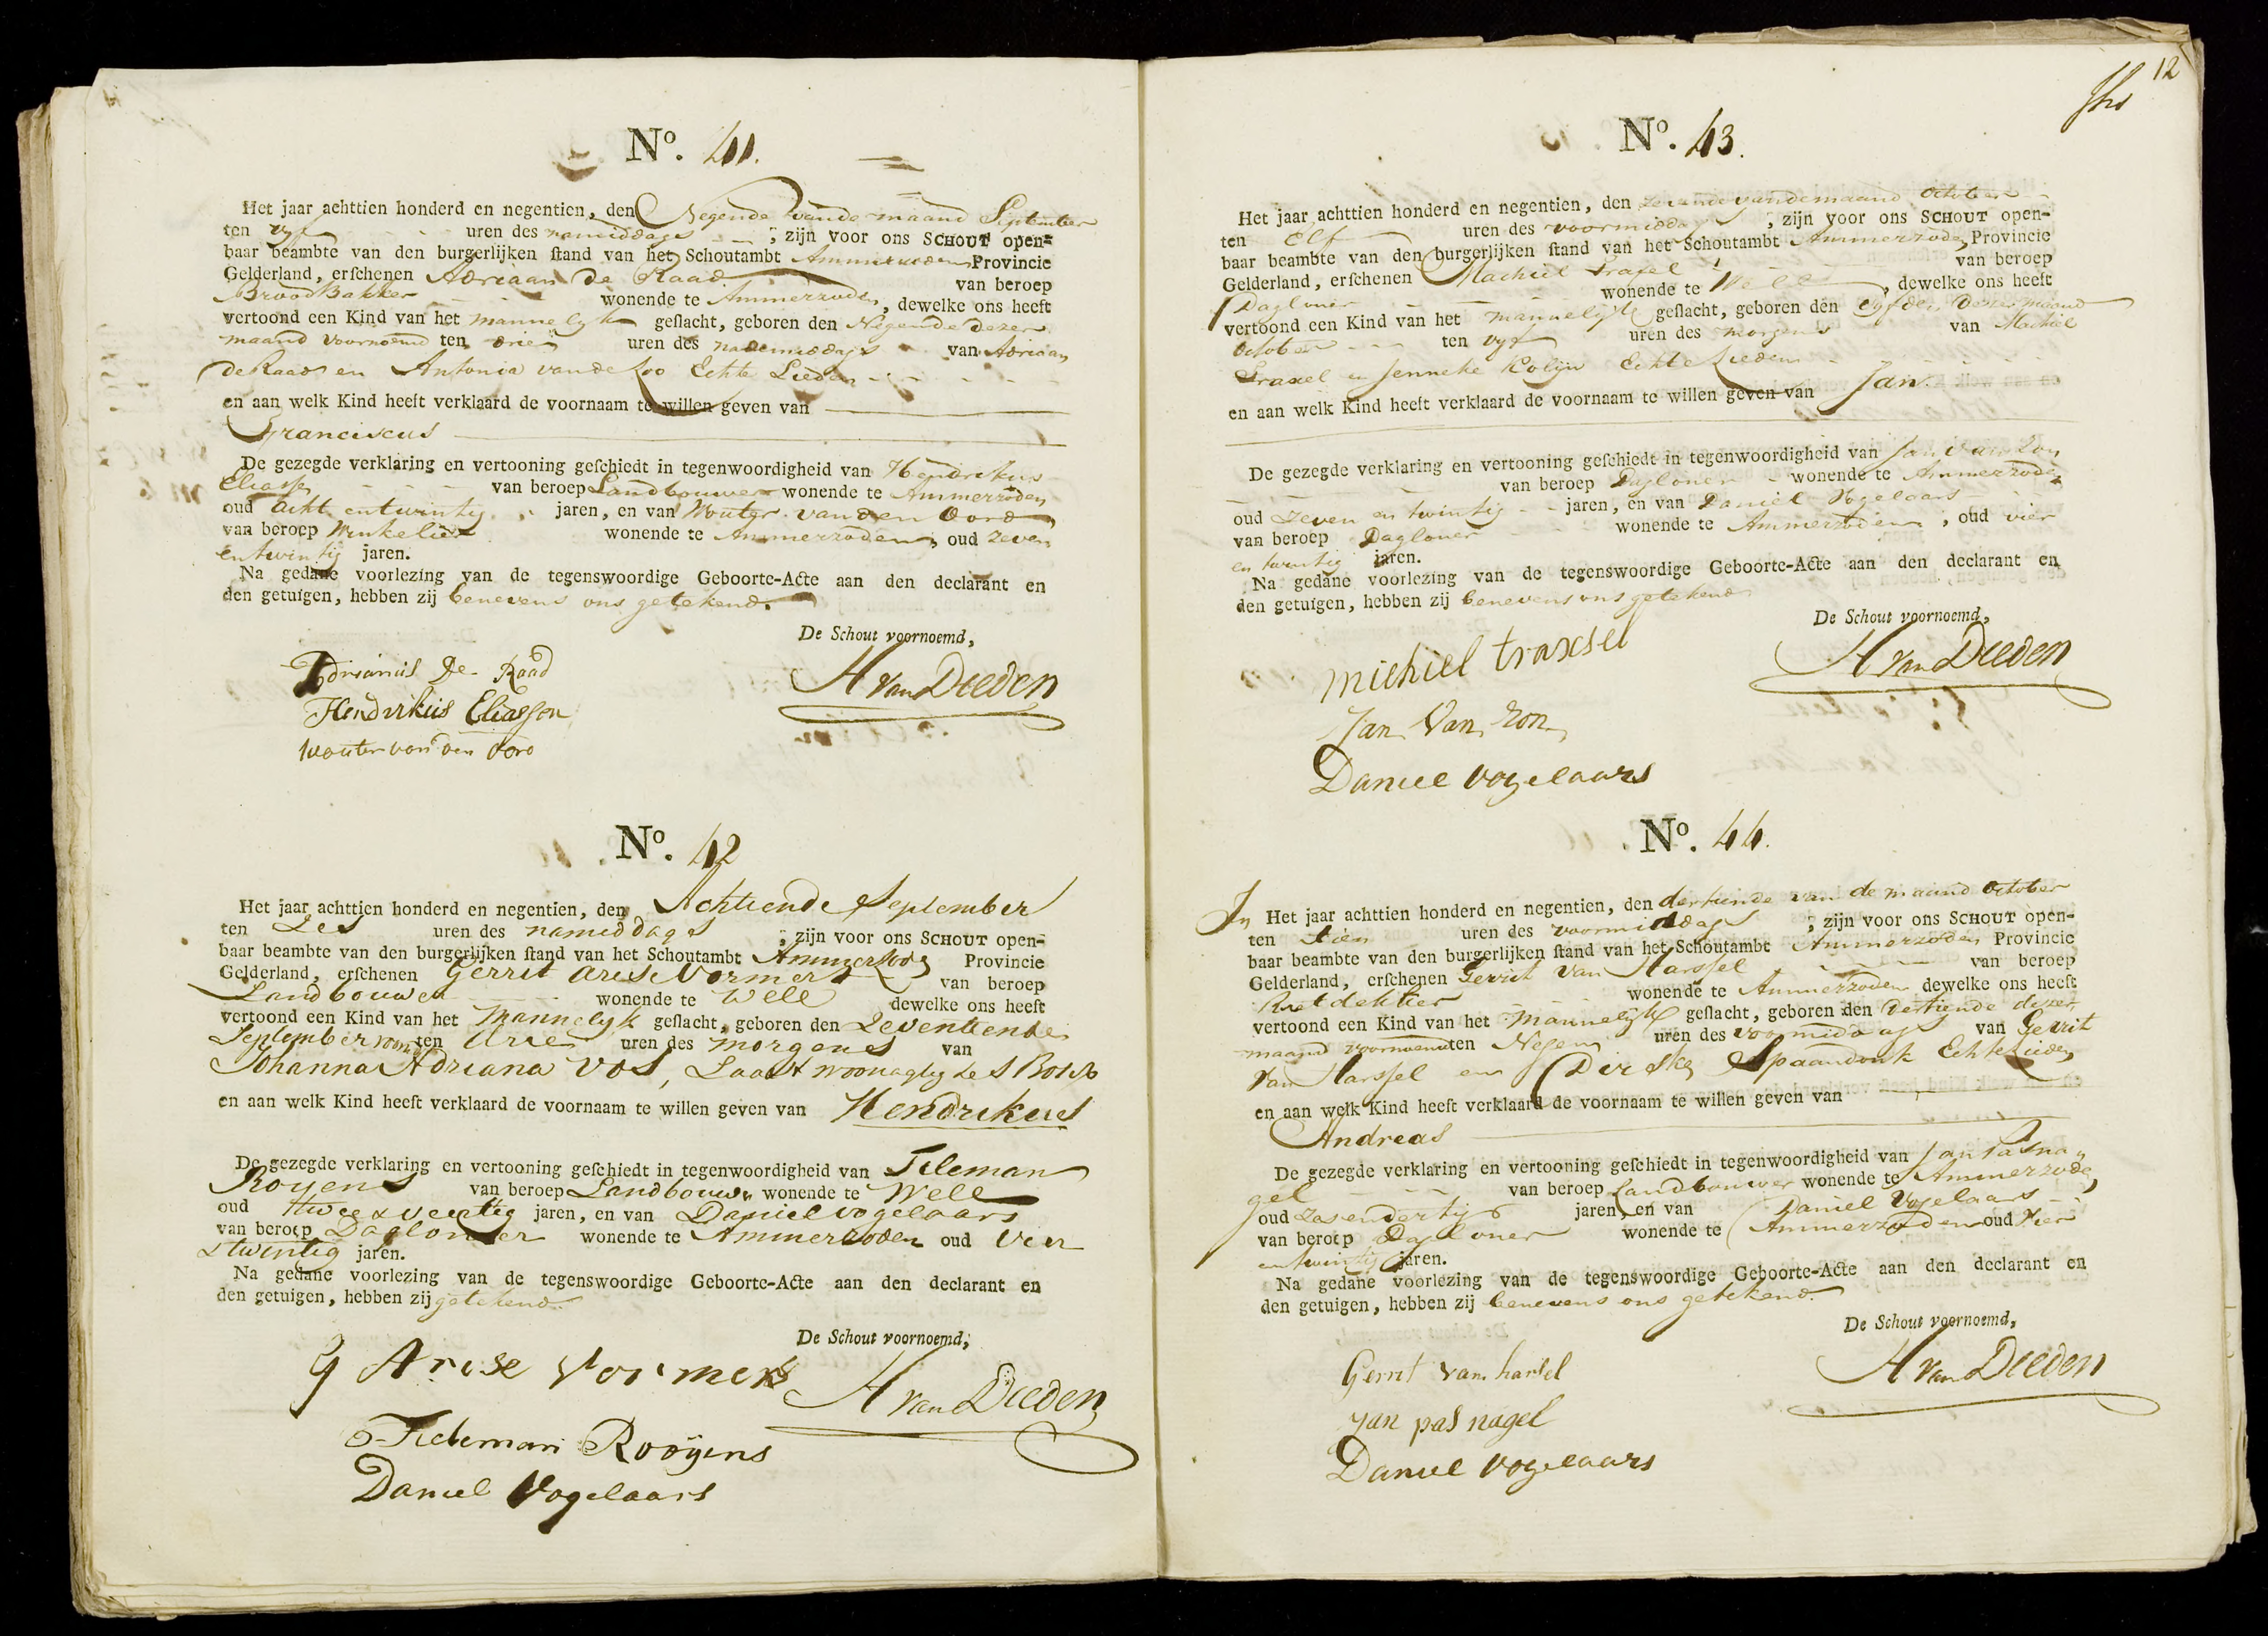 No. 41.
Het jaar achttien honderd en negentien, den Negende van de maand September
ten vyf uren des namiddags ; zijn voor ons SCHOUT open-
baar beambte van den burgerlijken stand van het Schoutambt Ammerzoden Provincie
Gelderland, erschenen Adriaan De Raad van beroep
BroodBakker wonende te Ammerzoden, dewelke ons heeft
vertoond een Kind van het mannelyk geslacht, geboren den Negende dezer
maand voornoemd ten drie uren des nademiddags van Adriaan
de Raad en Antonia van de Loo Echte Lieden
en aan welk Kind heeft verklaard de voornaam te willen geven van
Franciscus
De gezegde verklaring en vertooning geschiedt in tegenwoordigheid van Hendrikus
Eliassen van beroep Landbouwer wonende te Ammerzoden
oud acht en twintig jaren, en van Wouter van den Oord
van beroep Winkelier wonende te Ammerzoden, oud zeven
en twintig jaren.
Na gedane voorlezing van de tegenswoordige Geboorte-Acte aan den declarant en
den getuigen, hebben zij benevens ons getekend.
De Schout voornoemd,
Adrianus De Raad
H van Dieden
Hendrikus Eliassen
Wouter van den Oord
No. 42
Het jaar achttien honderd en negentien, den Achtiende September
ten Zes uren des namiddags ; zijn voor ons SCHOUT open-
baar beambte van den burgerlijken stand van het Schoutambt Ammerzoden Provincie
Gelderland, erschenen Gerrit Arise Vormers van beroep
Landbouwer wonende te Well dewelke ons heeft
vertoond een Kind van het Mannelyk geslacht, geboren den Zeventiende
September ten drie uren des morgens van
Johanna Adriana Vos, Laast woonagtig te s Bosch
en aan welk Kind heeft verklaard de voornaam te willen geven van Hendrikus
De gezegde verklaring en vertooning geschiedt in tegenwoordigheid van Tileman
Royens van beroep Landbouwer wonende te Well
oud twee & veertig jaren, en van Daniel vogelaars
van beroep Daglonder wonende te Ammerzoden oud Vier
& twintig jaren.
Na gedane voorlezing van de tegenswoordige Geboorte-Acte aan den declarant en
den getuigen, hebben zij getekend.
De Schout voornoemd,
G Arise Vormers
H van Dieden
Tieleman Rooyens
Daniel Vogelaars
12
No. 43.
Het jaar achttien honderd en negentien, den zevende van de maand October
ten Elf uren des voormiddags ; zijn voor ons SCHOUT open-
baar beambte van den burgerlijken stand van het Schoutambt Ammerzoden Provincie
Gelderland, erschenen Machiel Traxel van beroep
Dagloner wonende te Well, dewelke ons heeft
vertoond een Kind van het mannelyk geslacht, geboren den vyfden dezer maand
October ten vyf uren des morgens van Machiel
Traxel en Jenneke Kolijn Echte Lieden
en aan welk Kind heeft verklaard de voornaam te willen geven van Jan.
De gezegde verklaring en vertooning geschiedt in tegenwoordigheid van Jan van Zon
van beroep Dagloner wonende te Ammerzoden
oud zeven en twintig jaren, en van Daniel Vogelaars
van beroep Dagloner wonende te Ammerzoden, oud vier
en twintig jaren.
Na gedane voorlezing van de tegenswoordige Geboorte-Acte aan den declarant en
den getuigen, hebben zij benevens ons getekend
De Schout voornoemd,
michiel traxsel
H van Dieden
Jan Van Zon
Daniel vogelaars
No. 44.
In Het jaar achttien honderd en negentien, den dertiende van de maand October
ten tien uren des voormiddags ; zijn voor ons SCHOUT open-
baar beambte van den burgerlijken stand van het Schoutambt Ammerzoden Provincie
Gelderland, erschenen Gerrit van Harssel van beroep
Rietdekker wonende te Ammerzoden dewelke ons heeft
vertoond een Kind van het mannelyk geslacht, geboren den dertiende dezer
maand voornoemd ten Negen uren des voormiddags van Gerrit
van Harssel en Dirske Spaandonk Echte Lieden
en aan welk Kind heeft verklaard de voornaam te willen geven van
Andreas
De gezegde verklaring en vertooning geschiedt in tegenwoordigheid van Jan Pasna-
gel van beroep Landbouwer wonende te Ammerzoden
oud zes en dertig jaren, en van Daniel Vogelaars
van beroep Dagloner wonende te Ammerzoden oud vier
en twintig jaren.
Na gedane voorlezing van de tegenswoordige Geboorte-Acte aan den declarant en
den getuigen, hebben zij benevens ons getekend.
De Schout voornoemd,
Gerrit van harsel
H van Dieden
Jan pas nagel
Daniel vogelaars